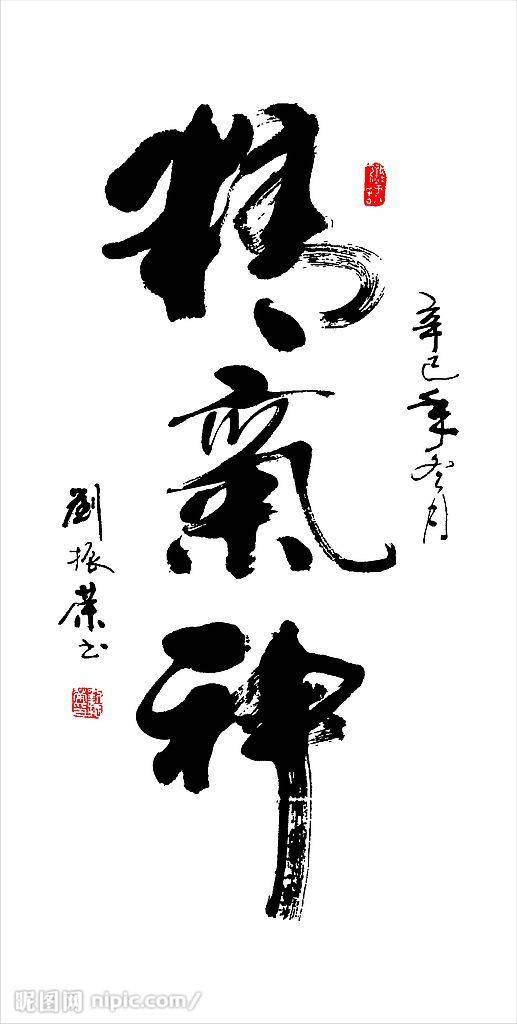 精氣神
辛巳年冬月
劉振榮书
昵图网 nipic.com/